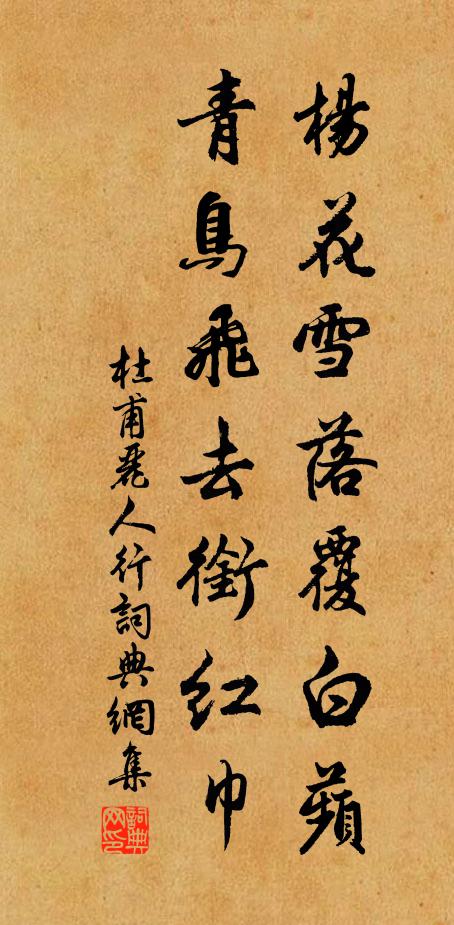 楊花雪落覆白蘋
青鳥飛去銜紅巾
杜甫麗人行詞典網集
詞典网印